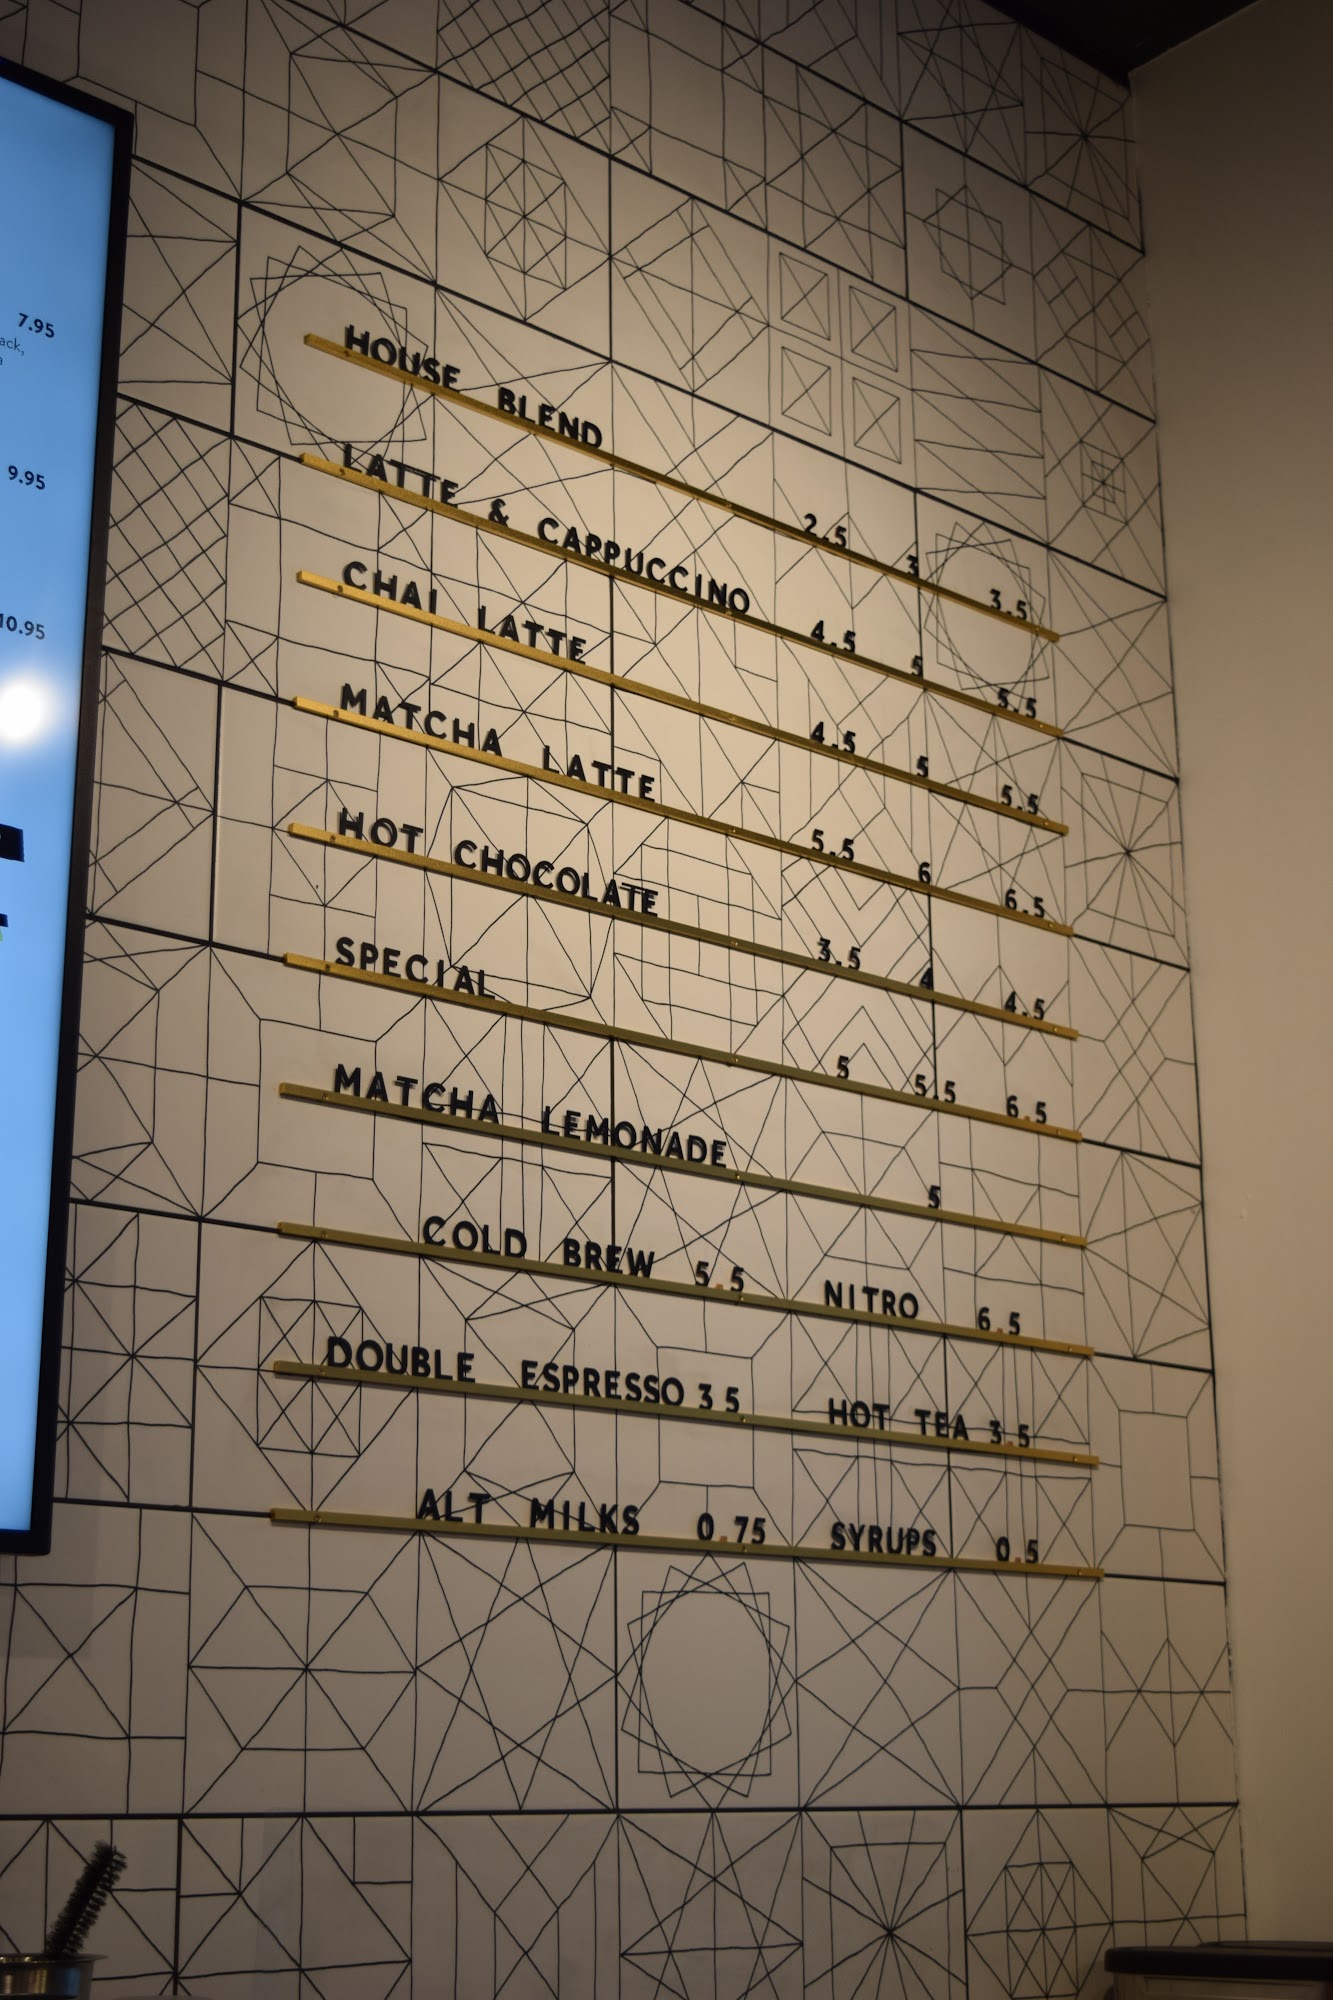 7.95
ack,
a
9.95
10.95
HOUSE BLEND 2.5 3 3.5
LATTE & CAPPUCCINO 4.5 5 5.5
CHAI LATTE 4.5 5 5.5
MATCHA LATTE 5.5 6 6.5
HOT CHOCOLATE 3.5 4 4.5
SPECIAL 5 5.5 6.5
MATCHA LEMONADE 5
COLD BREW 5.5 NITRO 6.5
DOUBLE ESPRESSO 3 5 HOT TEA 3.5
ALT MILKS 0.75 SYRUPS 0.5